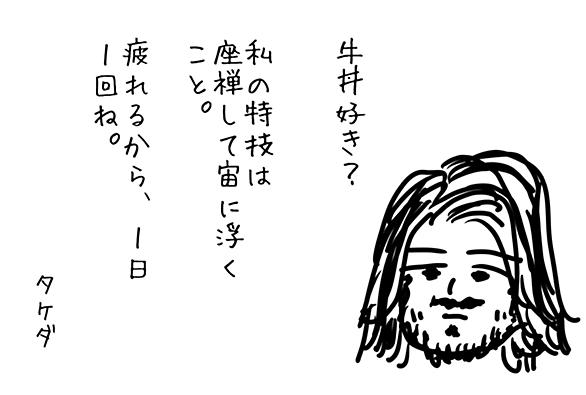 牛丼好き？
私の特技は
座禅して宙に浮く
こと。
疲れるから、一日
一回ね。
タケダ